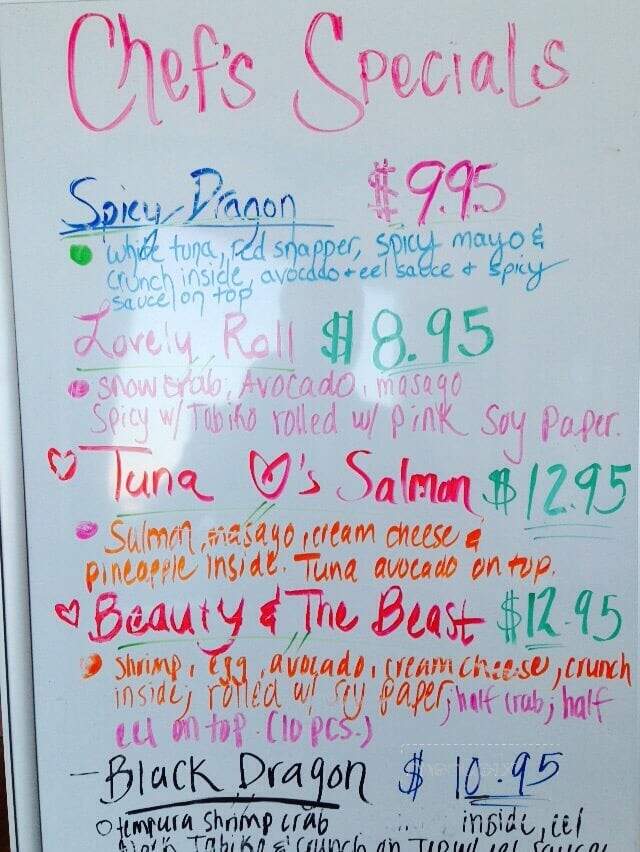 Chef's Specials
Spicy Dragon $9.95
white tuna, red snapper, spicy mayo &
crunch inside, avocado + eel sauce + spicy
sauce on top
Lovely Roll $8.95
snow crab, Avocado, masago
Spicy w/ Tobiko rolled w/ pink soy paper.
Tuna ♡'s Salmon $12.95
Salmon, masago, cream cheese &
pineapple inside. Tuna avocado on top.
Beauty & The Beast $12.95
shrimp, egg, avocado, cream cheese, crunch
inside, rolled w/ soy paper, half crab, half
eel on top. (10 pcs.)
- Black Dragon $10.95
tempura shrimp crab inside, eel
black Tobiko & crunch on Top w/ eel sauce